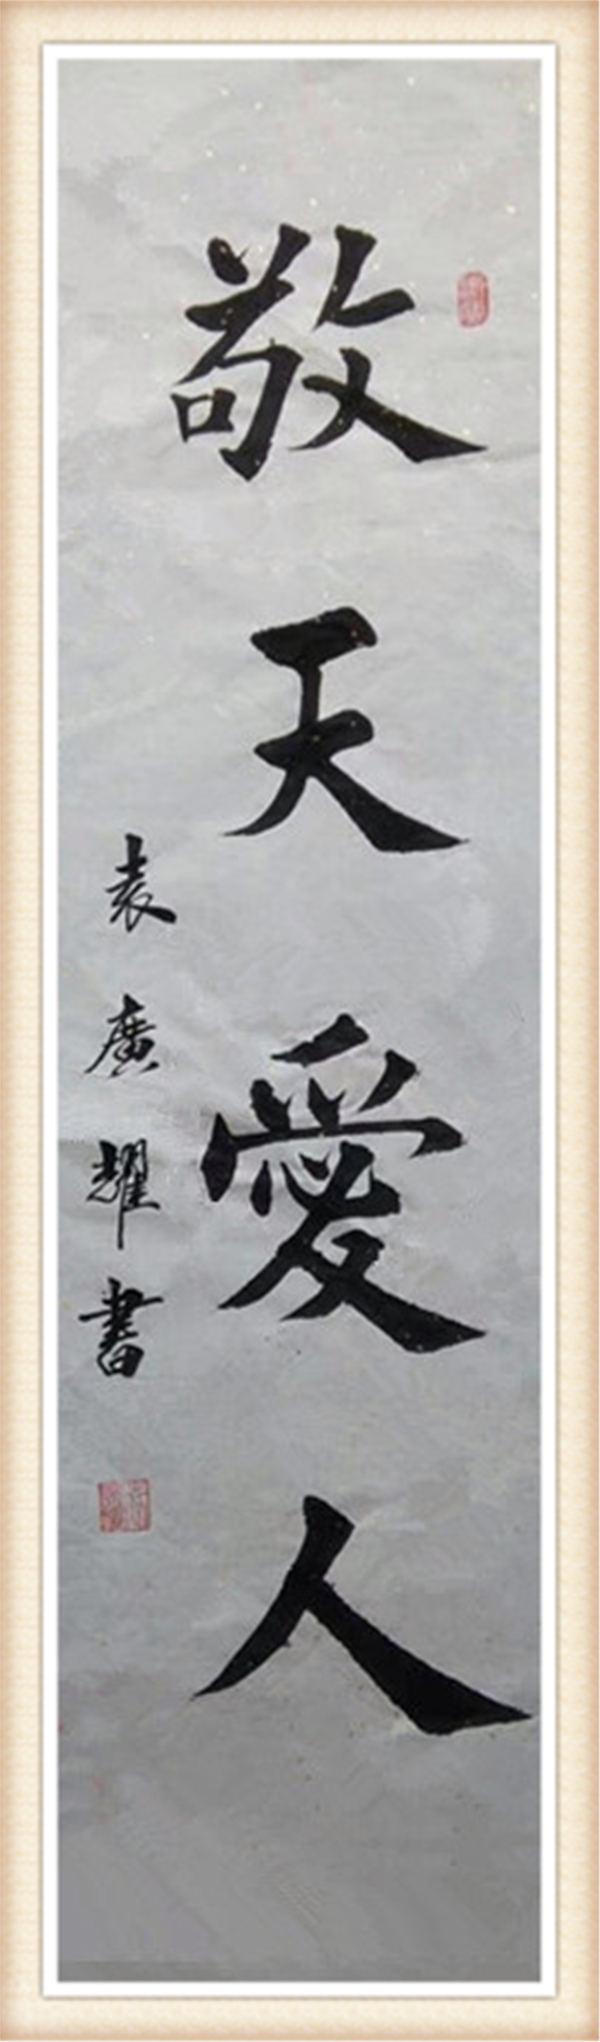 敬天愛人
袁廣耀書